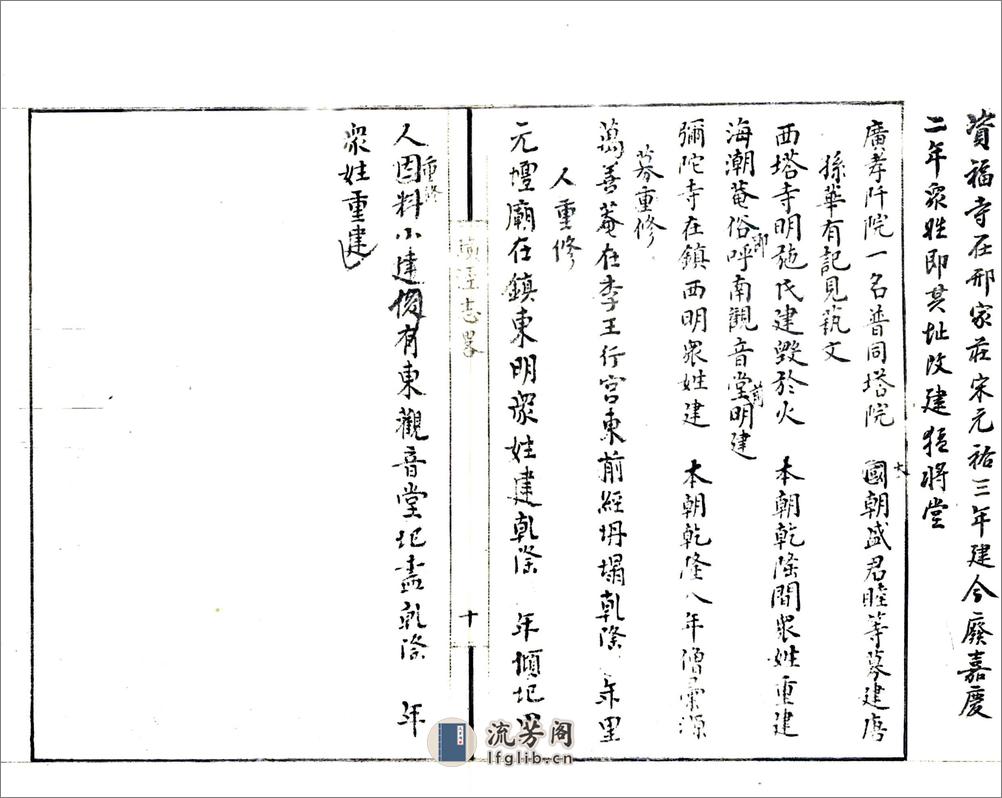 資福寺在邢家莊宋元祐三年建今廢嘉慶
二年眾姓即其址改建猛將堂
大
廣孝阡院一名普同塔院 國朝盛君睦等募建唐
孫華有記見藝文
西塔寺明施氏建毀於火 本朝乾隆間眾姓重建
海潮菴俗呼南觀音堂明建
即
前
彌陀寺在鎮西明眾姓建 本朝乾隆八年僧 源
募重修
萬善菴在李王行宮東前經坍塌乾隆 年里
人重修
元壇廟在鎮東明眾姓建乾隆 年傾圯里
志畧
十
人因料小建復有東觀音堂圯盡乾隆 年
重修
眾姓重建
流芳阁
lfglib.cn